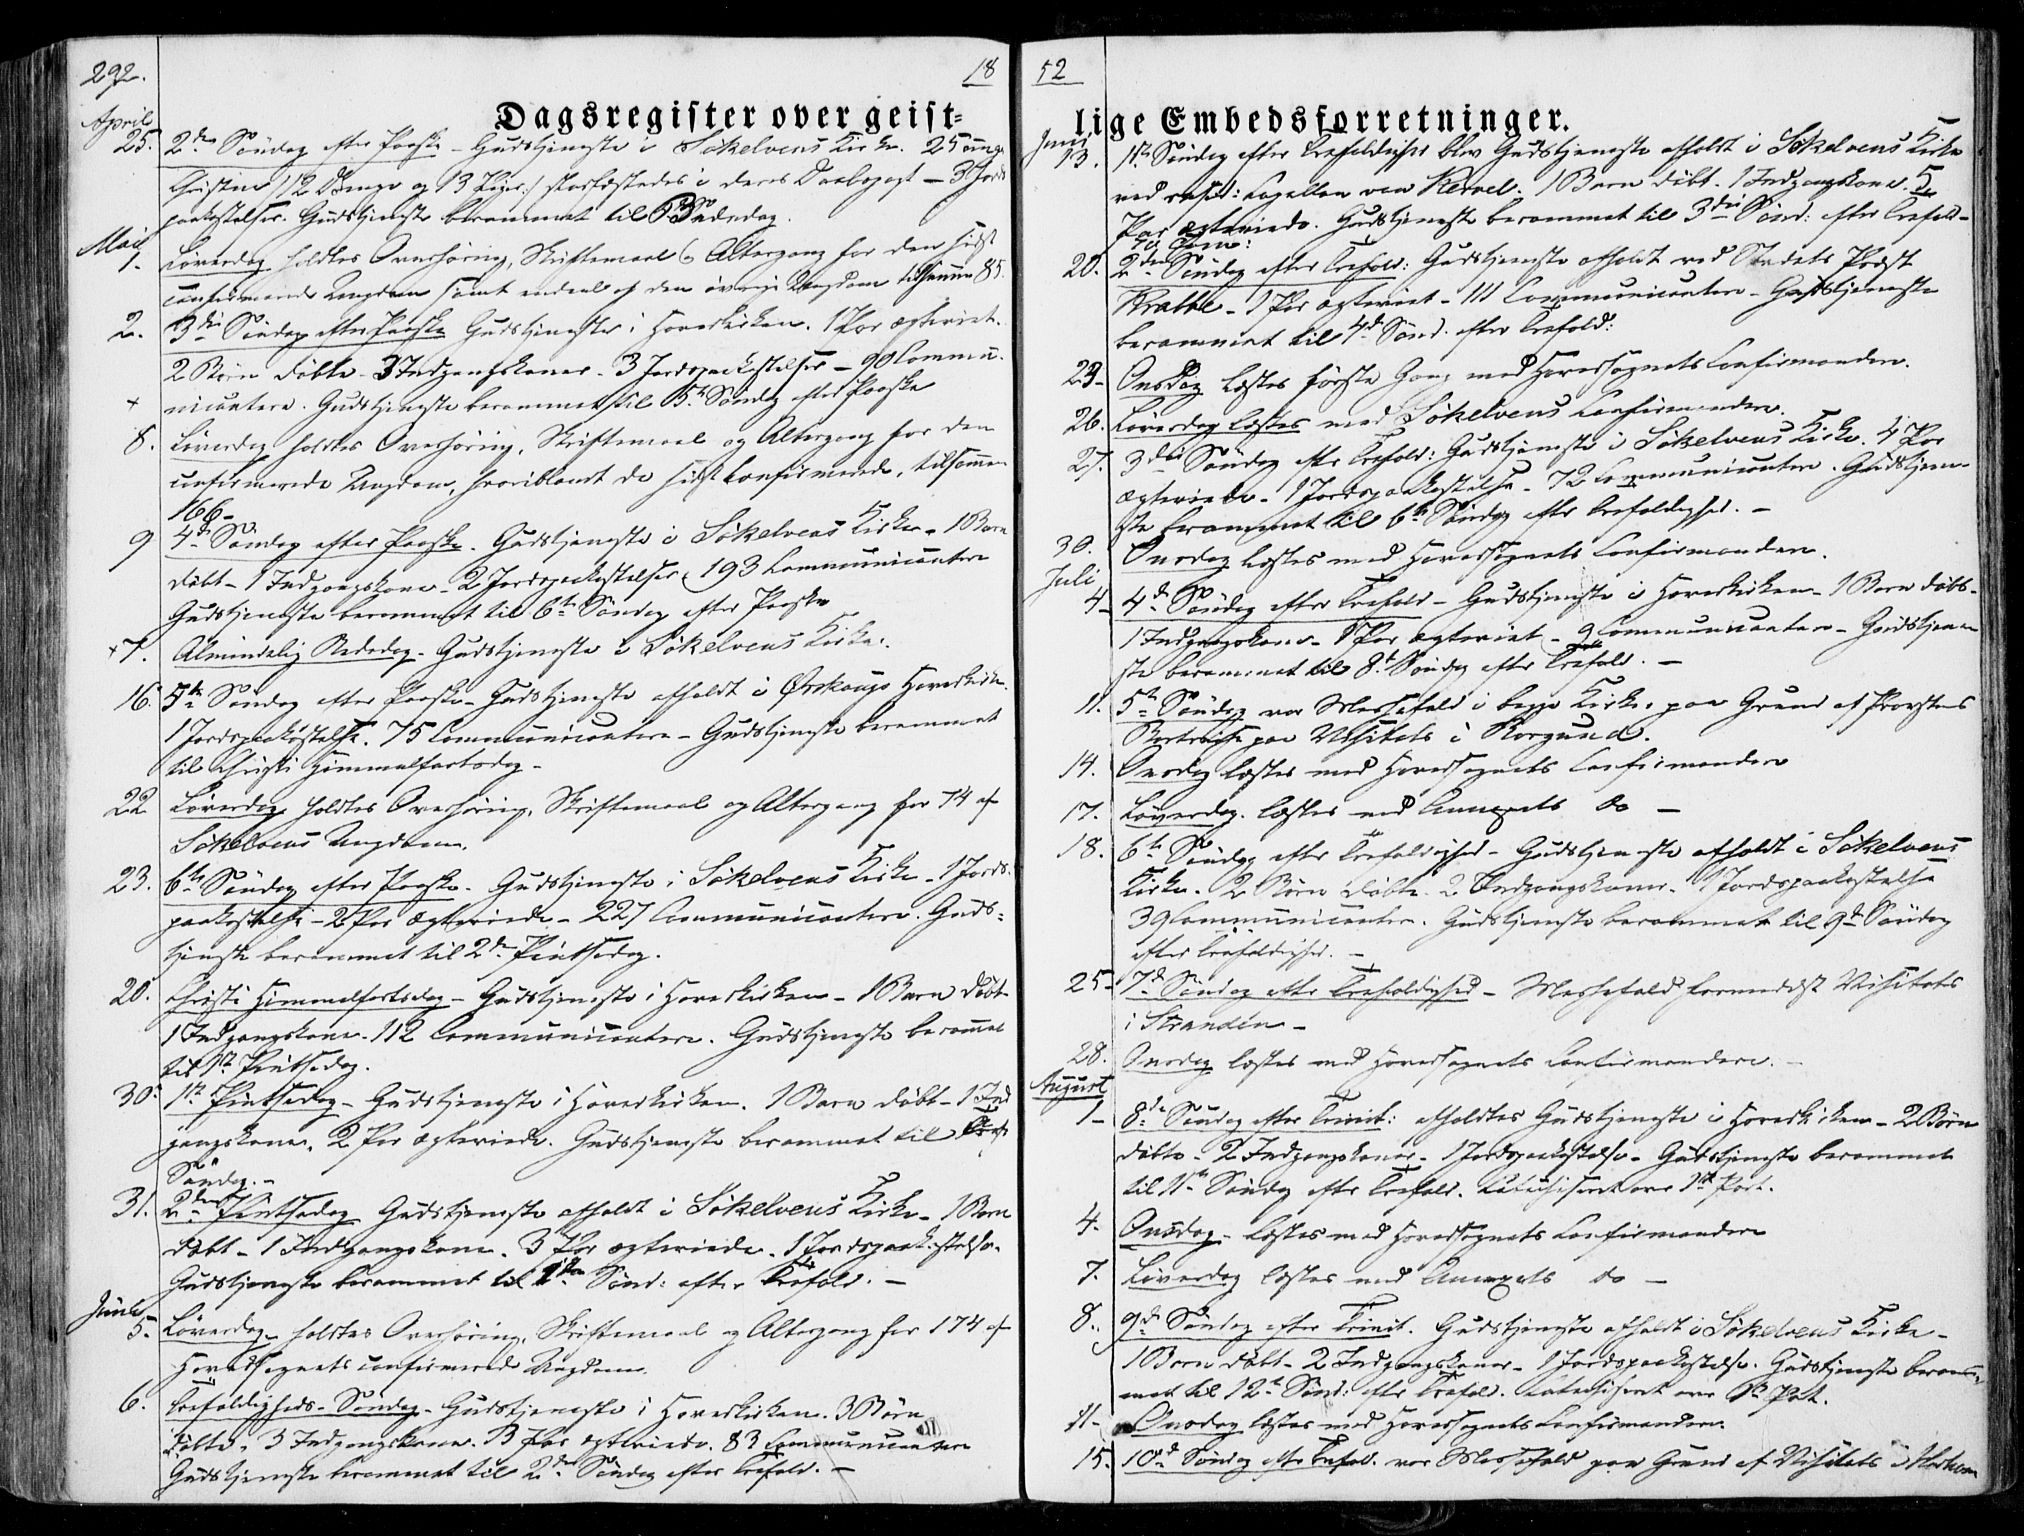 292.
18
Dagsregister over geist-
April
25. 2den Søndag efter Paaske - Gudstjeneste i Søkelvens Kirke. 25 unge
Christne (: 12 Drenge og 13 Piger :) stadfæstedes i deres Daabspagt - 3 Jords-
paakastelser. Gudstjeneste berammet til Bededag.
Mai
1. Løverdag holdtes Overhøring, Skriftemaal og Altergang for den sidst
confirmerede Ungdom samt endeel af den øvrige Ungdom tilsammen 85.
2. 3die Søndag efter Paaske Gudstjeneste i Hovedkirken. 1 Par ægteviet.
2 Børn døbte. 3 Indgangskoner. 3 Jordspaakastelser - 90 Commu-
nicantere. Gudstjeneste berammet til 5te Søndag efter Paaske
8. Løverdag holdtes Overhøring, Skriftemaal og Altergang for den
confirmerede Ungdom, hvoriblandt de sidst Confirmerede, tilsammen
166 -
9 4de Søndag efter Paaske. Gudstjeneste i Søkelvens Kirke - 1 Barn
døbt - 1 Indgangskone - 2 Jordspaakastelser, 193 Communicantere
Gudstjeneste berammet til 6te Søndag efter Paaske
+7. Almindelig Bededag - Gudstjeneste i Søkelvens Kirke.
16. 5te Søndag efter Paaske - Gudstjeneste afholdt i Ørskougs Hovedkirke.
1 Jordspaakastelse. 75 Communicantere - Gudstjeneste berammet
til Christi Himmelfartsdag -
22 Løverdag holdtes Overhøring, Skriftemaal og Altergang for 74 af
Søkelvens Ungdom.
23. 6te Søndag efter Paaske - Gudstjeneste i Søkelvens Kirke - 1 Jords-
paakastelse - 2 Par ægteviede - 227 Communicantere. Guds-
tjeneste berammet til 2den Pintsedag.
20. Christi Himmelfartsdag - Gudstjeneste i Hovedkirken - 1 Barn døbt
1 Indgangskone. 112 Communicantere. Gudstjeneste berammet
til 1ste Pintsedag.
30. 1ste Pintsedag - Gudstjeneste i Hovedkirken. 1 Barn døbt - 1 Ind
gangskone, 2 Par ægteviede. Gudstjeneste berammet til
Søndag. -
31. 2den Pintsedag Gudstjeneste afholdt i Søkelvens Kirke - 1 Barn
døbt - 1 Indgangskone. 3 Par ægteviede - 1 Jordspaakastelse.
Gudstjeneste berammet til 1ste Sønd: efter Trefold. -
Juni
5. Løverdag holdtes Overhøring, Skriftemaal og Altergang for 174 af
Hovedsognets confirmerede Ungdom.
6. Trefoldigheds-Søndag - Gudstjeneste i Hovedkirken. 3 Børn
døbte, 3 Indgangskoner. 3 Par ægteviede. 83 Communicantere
Gudstjeneste berammet til 2den Søndag efter Trefold. -
52
lige Embedsforretninger.
Juni
13. 1ste Søndag efter Trefoldighed blev Gudstjeneste afholdt i Søkelvens Kirke
ved resid: Capellan von Krevel. 1 Barn døbt. 1 Indgangskone. 5
Par ægteviede. Gudstjeneste berammet til 3die Sønd: efter Trefold-
20. 2den Søndag efter Trefold: Gudstjeneste afholdt ved Stedets Præst
Krabbe - 1 Par ægteviet - 111 Communicantere - Gudstjeneste
berammet til 4de Sønd. efter Trefold:
23 - Onsdag læstes første Gang med Hovedsognets Confirmander.
26. Løverdag læstes med Søkelvens Confirmander.
27. 3die Søndag efter Trefold: Gudstjeneste i Søkelvens Kirke. 4 Par
ægteviede - 1 Jordspaakastelse - 72 Communicantere. Gudstjene-
ste berammet til 6te Søndag efter Trefoldighed. -
30. Onsdag læstes med Hovedsognets Confirmander.
Juli
4 - 4de Søndag efter Trefold - Gudstjeneste i Hovedkirken - 1 Barn døbt -
1 Indgangskone - 1 Par ægteviet - 9 Communicantere - Gudstjene
ste berammet til 8de Søndag efter Trefold. -
11. 5te Søndag var Messefald i begge Kirker paa Grund af Provstens
Bortreise paa Visitats i Borgund.
14. Onsdag læstes med Hovedsognets Confirmander
17. Løverdag læstes med Annexets do -
18. 6te Søndag efter Trefoldighed - Gudstjeneste afholdt i Søkelvens
Kirke. 2 Børn døbte - 2 Indgangskoner. 1 Jordspaakastelse
39 Communicantere. Gudstjeneste berammet til 9de Søndag
efter Trefoldighed. -
25 - 7de Søndag efter Trefoldighed - Messefald formedelst Visitats
i Stranden -
28. Onsdag læstes med Hovedsognets Confirmandere. -
August
1 - 8de Søndag efter Trinit: afholdtes Gudstjeneste i Hovedkirken - 2 Børn
døbte - 2 Indgangskoner - 1 Jordspaakastelse - Gudstjeneste berammet
til 11te Søndag efter Trefold. Catechiseret over 1ste Part.
4. Onsdag - læstes med Hovedsognets Confirmandere
7. Løverdag læstes med Annexets do -
8. 9de Søndag efter Trinit. Gudstjeneste afholdt i Søkelvens Kirke -
1 Barn døbt - 2 Indgangskoner - 1 Jordspaakastelse. Gudstjeneste beram-
met til 12te Sønd. efter Trefold. Catechiseret over Part.
11 - Onsdag læstes med Hovedsognets Confirmander.
15. 10de Søndag efter Trefold. var Messefald paa Grund af Visitats i